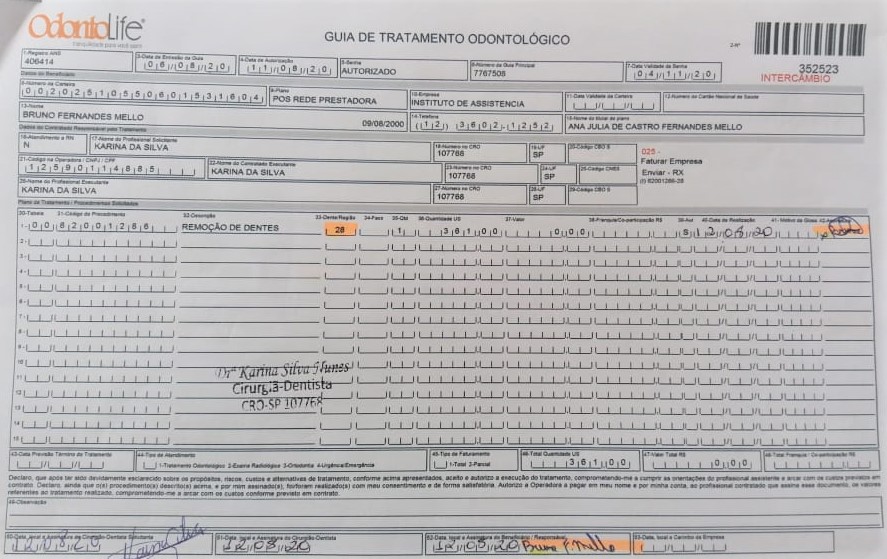 OdontoLife
GUIA DE TRATAMENTO ODONTOLÓGICO
2-Nº
352523
INTERCÂMBIO
1-Registro ANS
406414
3-Data de Emissão da Guia
06/08/20
4-Data de Autorização
11/08/20
5-Senha
AUTORIZADO
6-Número da Guia Principal
7767508
7-Data Validade da Senha
04/11/20
Dados do Beneficiário
8-Número da Carteira
00202510550601531604
9-Plano
POS REDE PRESTADORA
10-Empresa
INSTITUTO DE ASSISTENCIA
11-Data Validade da Carteira
12-Número do Cartão Nacional de Saúde
13-Nome
BRUNO FERNANDES MELLO
09/08/2000
14-Telefone
(12) 3602-1252
15-Nome do titular do plano
ANA JULIA DE CASTRO FERNANDES MELLO
Dados do Contratado Responsável pelo Tratamento
16-Atendimento a RN
N
17-Nome do Profissional Solicitante
KARINA DA SILVA
18-Número no CRO
107768
19-UF
SP
20-Código CBO S
025 -
Faturar Empresa
Enviar - RX
(I) 82001286-28
21-Código na Operadora / CNPJ / CPF
12590114885
22-Nome do Contratado Executante
KARINA DA SILVA
23-Número no CRO
107768
24-UF
SP
25-Código CNES
26-Nome do Profissional Executante
KARINA DA SILVA
27-Número no CRO
107768
28-UF
SP
29-Código CBO S
Plano de Tratamento / Procedimentos Solicitados
30-Tabela 31-Código do Procedimento 32-Descrição 33-Dente/Região 34-Face 35-Qtd 36-Quantidade US 37-Valor 38-Franquia/Co-participação R$ 39-Aut 40-Data de Realização 41- Motivo da Glosa
1- 00 82001286 REMOÇÃO DE DENTES 28 1 361,00 0,00 S 12/08/20
2-
3-
4-
5-
6-
7-
8-
9-
10
11
12
13
14
15
Drª Karina Silva Nunes
Cirurgiã-Dentista
CRO-SP 107768
43-Data Previsão Término do Tratamento
44-Tipo de Atendimento
1-Tratamento Odontológico 2-Exame Radiológico 3-Ortodontia 4-Urgência/Emergência
45-Tipo de Faturamento
1-Total 2-Parcial
46-Total Quantidade US
361,00
47-Valor Total R$
0,00
48-Total Franquia / Co-participação R$
Declaro, que após ter sido devidamente esclarecido sobre os propósitos, riscos, custos e alternativas de tratamento, conforme acima apresentados, aceito e autorizo a execução do tratamento, comprometendo-me a cumprir as orientações do profissional assistente e arcar com os custos previstos em
contrato. Declaro, ainda que o(s) procedimento(s) descrito(s) acima, e por mim assinado(s), foi/foram realizado(s) com meu consentimento e de forma satisfatória. Autorizo a Operadora a pagar em meu nome e por minha conta, ao profissional contratado que assina esse documento, os valores
referentes ao tratamento realizado, comprometendo-me a arcar com os custos conforme previsto em contrato.
49-Observação
50-Data, local e Assinatura do Cirurgião-Dentista Solicitante
12/08/20
51-Data, local e Assinatura do Cirurgião-Dentista
12/08/20
52-Data, local e Assinatura do Beneficiário / Responsável
12/08/20 Bruno F. Mello
53-Data, local e Carimbo da Empresa